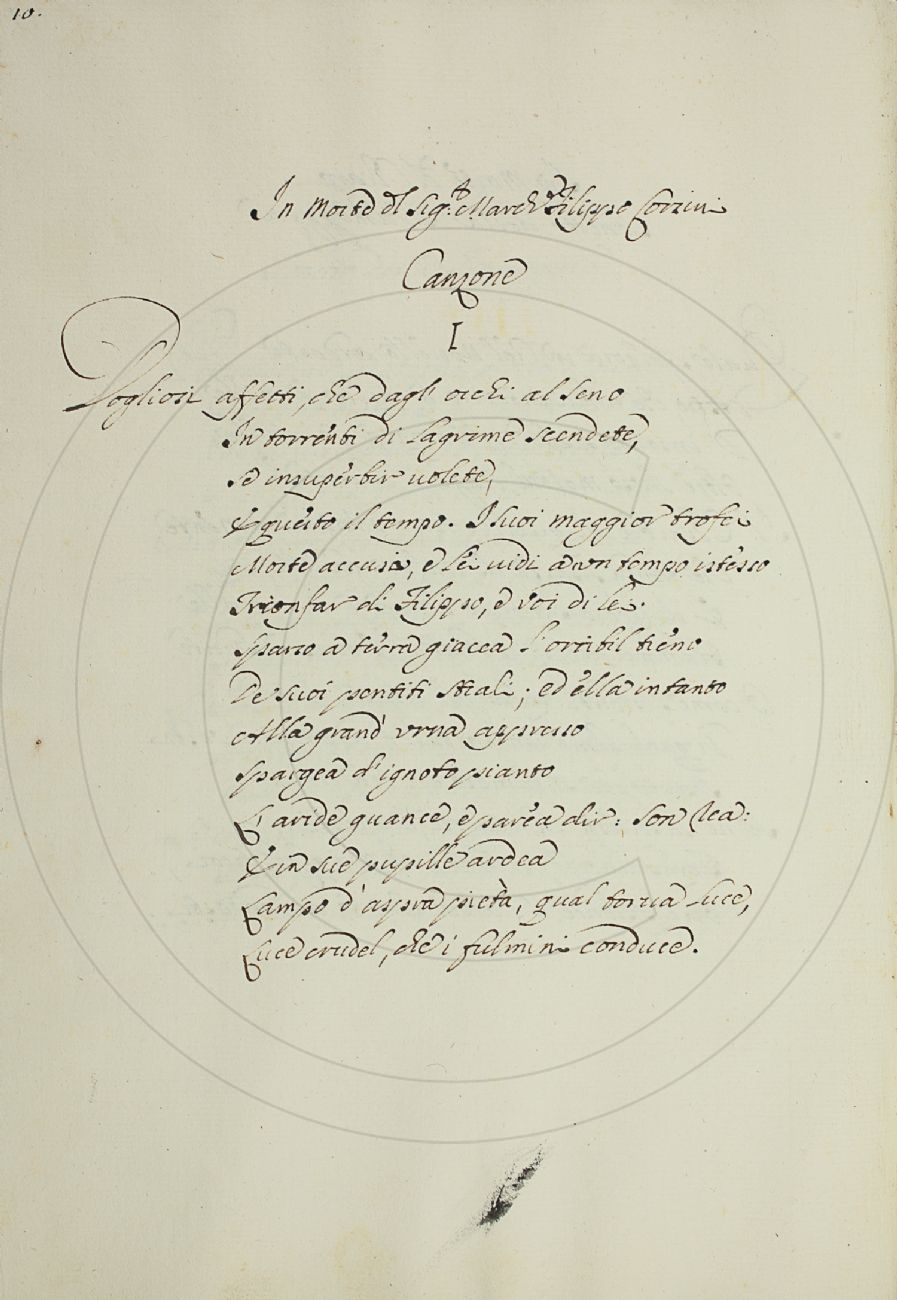 10.
In Morte dl Sig.r March.e Filippo Corsini
Canzone
I
Dogliosi affetti, che dagl' occhi al seno
In torrenti di lagrime scendete,
se insuperbir volete,
È questo il tempo. I suoi maggior trofei
Morte accusa, e lei vidi a un tempo istesso
Trionfar di Filippo, e voi di lei.
sparso a terra giacea l'orribil
De suoi pentiti strali; ed ella intanto
Alla grand' urna appresso
spargea d'ignoto pianto
L'aride guance, e parea dir: son rea:
E in sue pupille ardea
Lampo d'aspra pietà, qual torva luce,
Luce crudel, che i fulmini conduce.